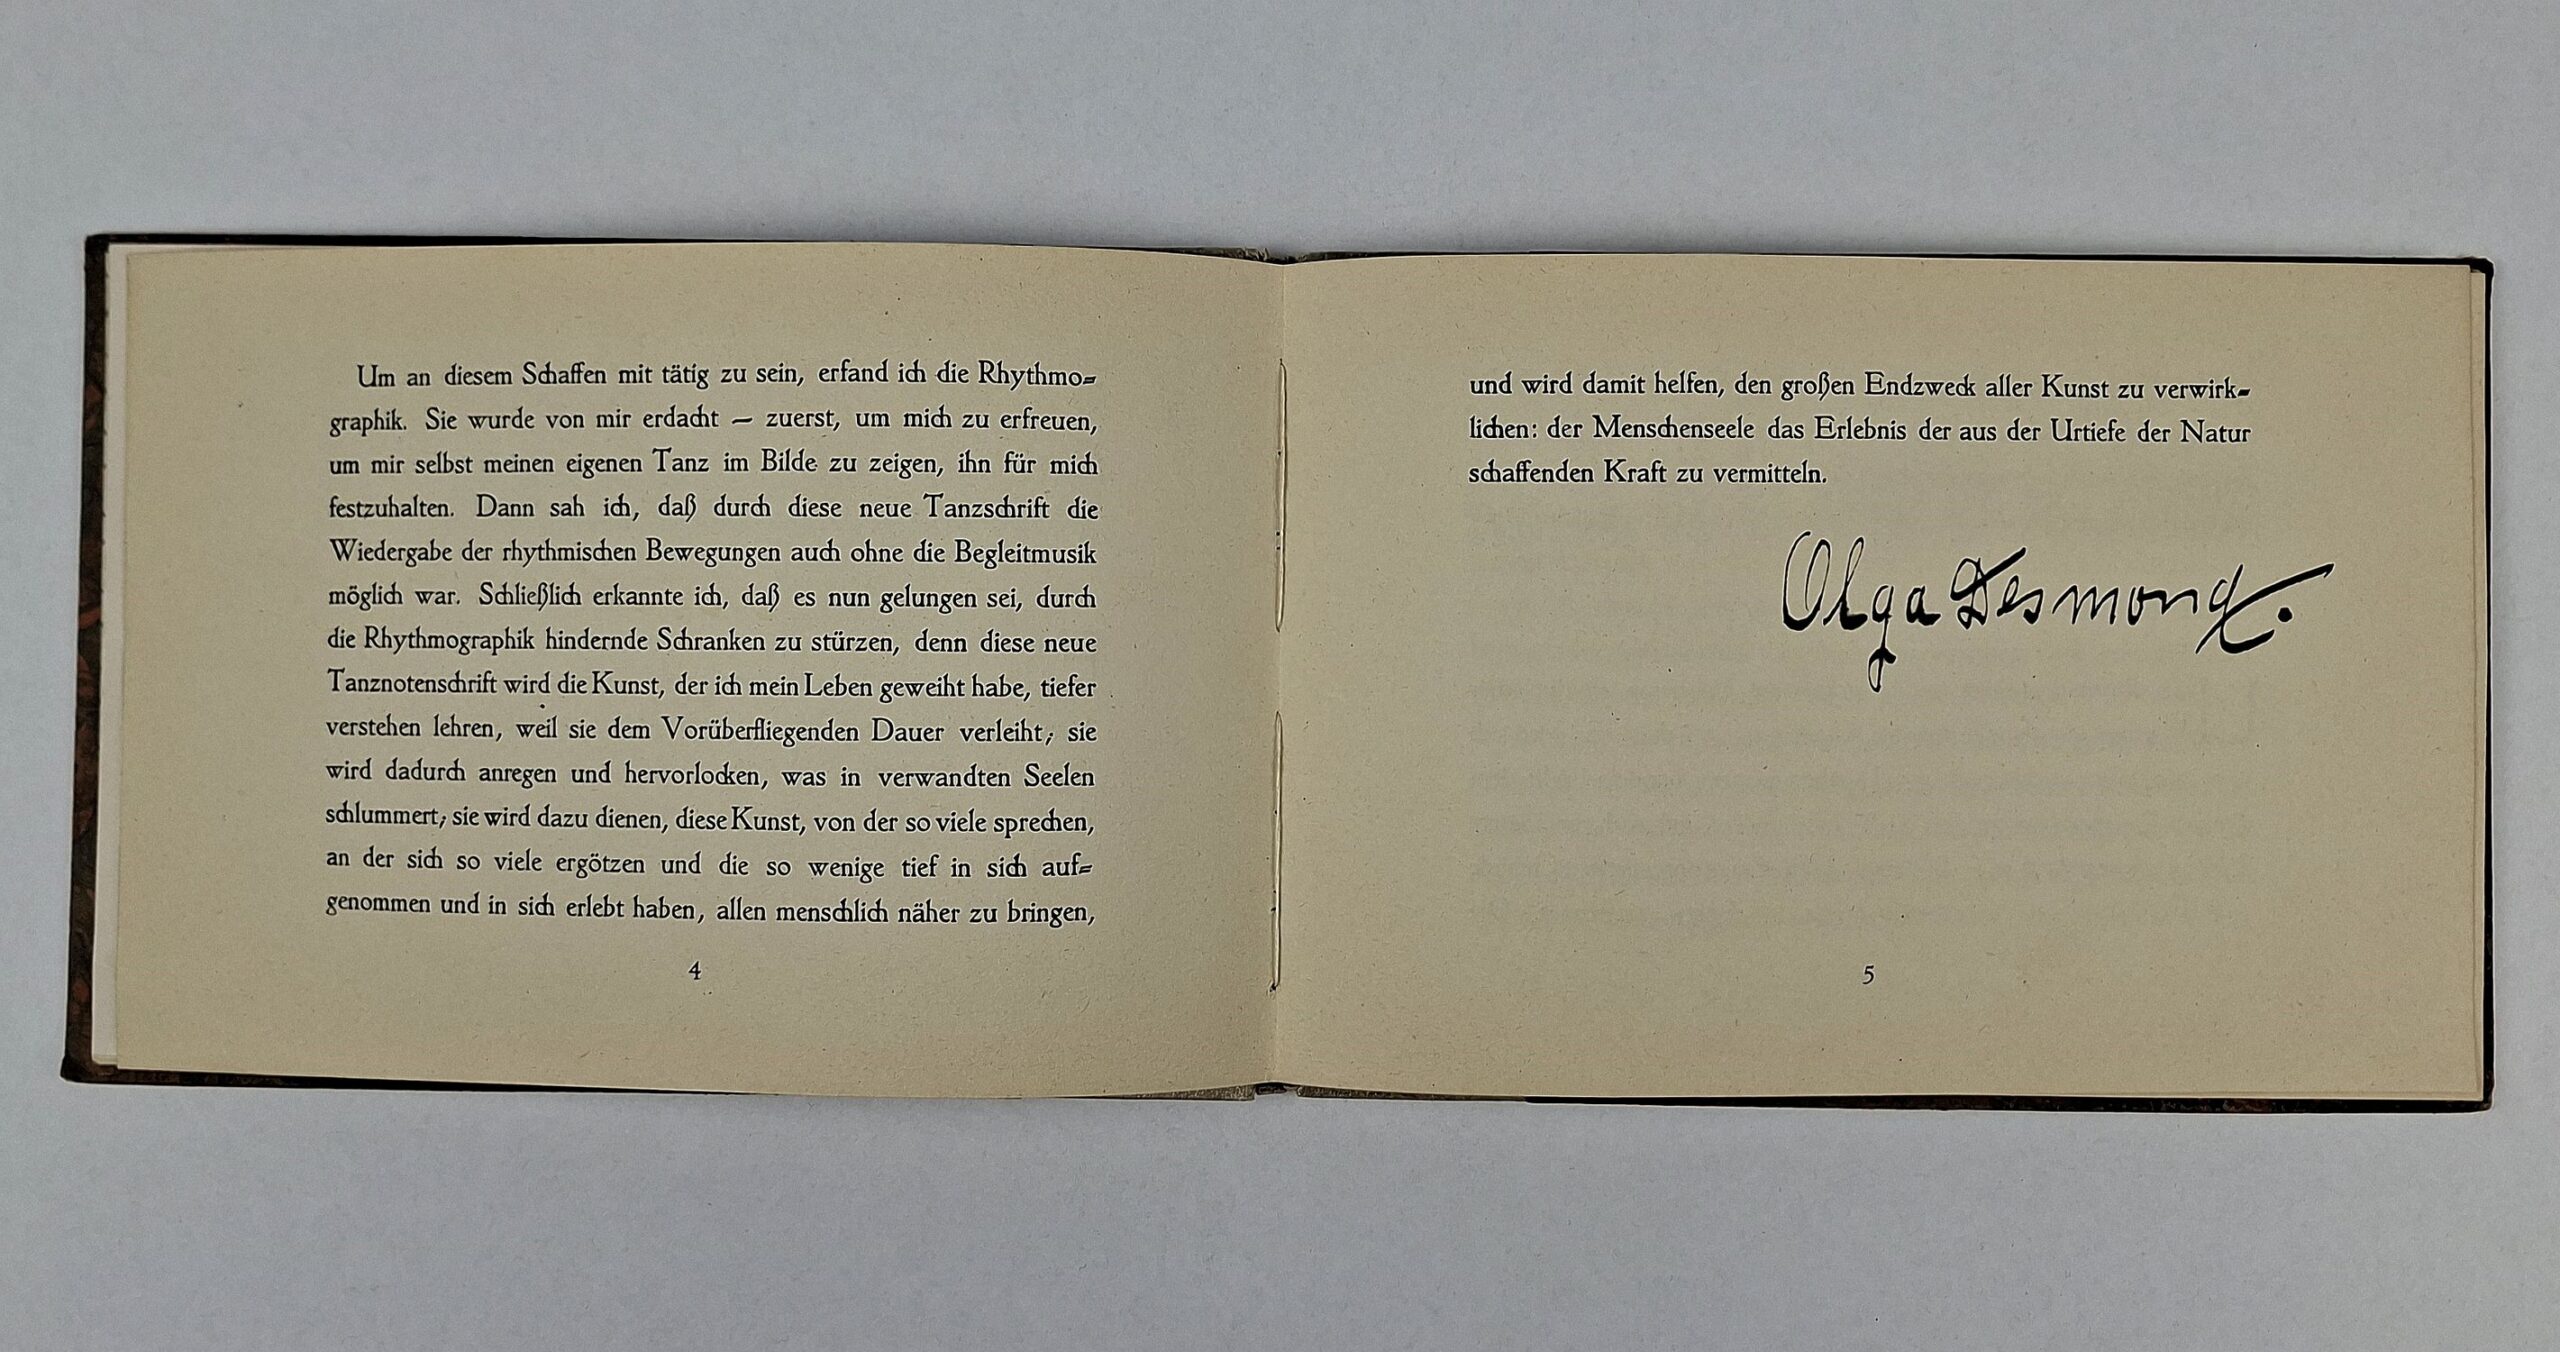 Um an diesem Schaffen mit tätig zu sein, erfand ich die Rhythmo-
graphik. Sie wurde von mir erdacht — zuerst, um mich zu erfreuen,
um mir selbst meinen eigenen Tanz im Bilde zu zeigen, ihn für mich
festzuhalten. Dann sah ich, daß durch diese neue Tanzschrift die
Wiedergabe der rhythmischen Bewegungen auch ohne die Begleitmusik
möglich war. Schließlich erkannte ich, daß es nun gelungen sei, durch
die Rhythmographik hindernde Schranken zu stürzen, denn diese neue
Tanznotenschrift wird die Kunst, der ich mein Leben geweiht habe, tiefer
verstehen lehren, weil sie dem Vorüberfliegenden Dauer verleiht; sie
wird dadurch anregen und hervorlocken, was in verwandten Seelen
schlummert; sie wird dazu dienen, diese Kunst, von der so viele sprechen,
an der sich so viele ergötzen und die so wenige tief in sich auf-
genommen und in sich erlebt haben, allen menschlich näher zu bringen,
4
und wird damit helfen, den großen Endzweck aller Kunst zu verwirk-
lichen: der Menschenseele das Erlebnis der aus der Urtiefe der Natur
schaffenden Kraft zu vermitteln.
Olga Desmond.
5